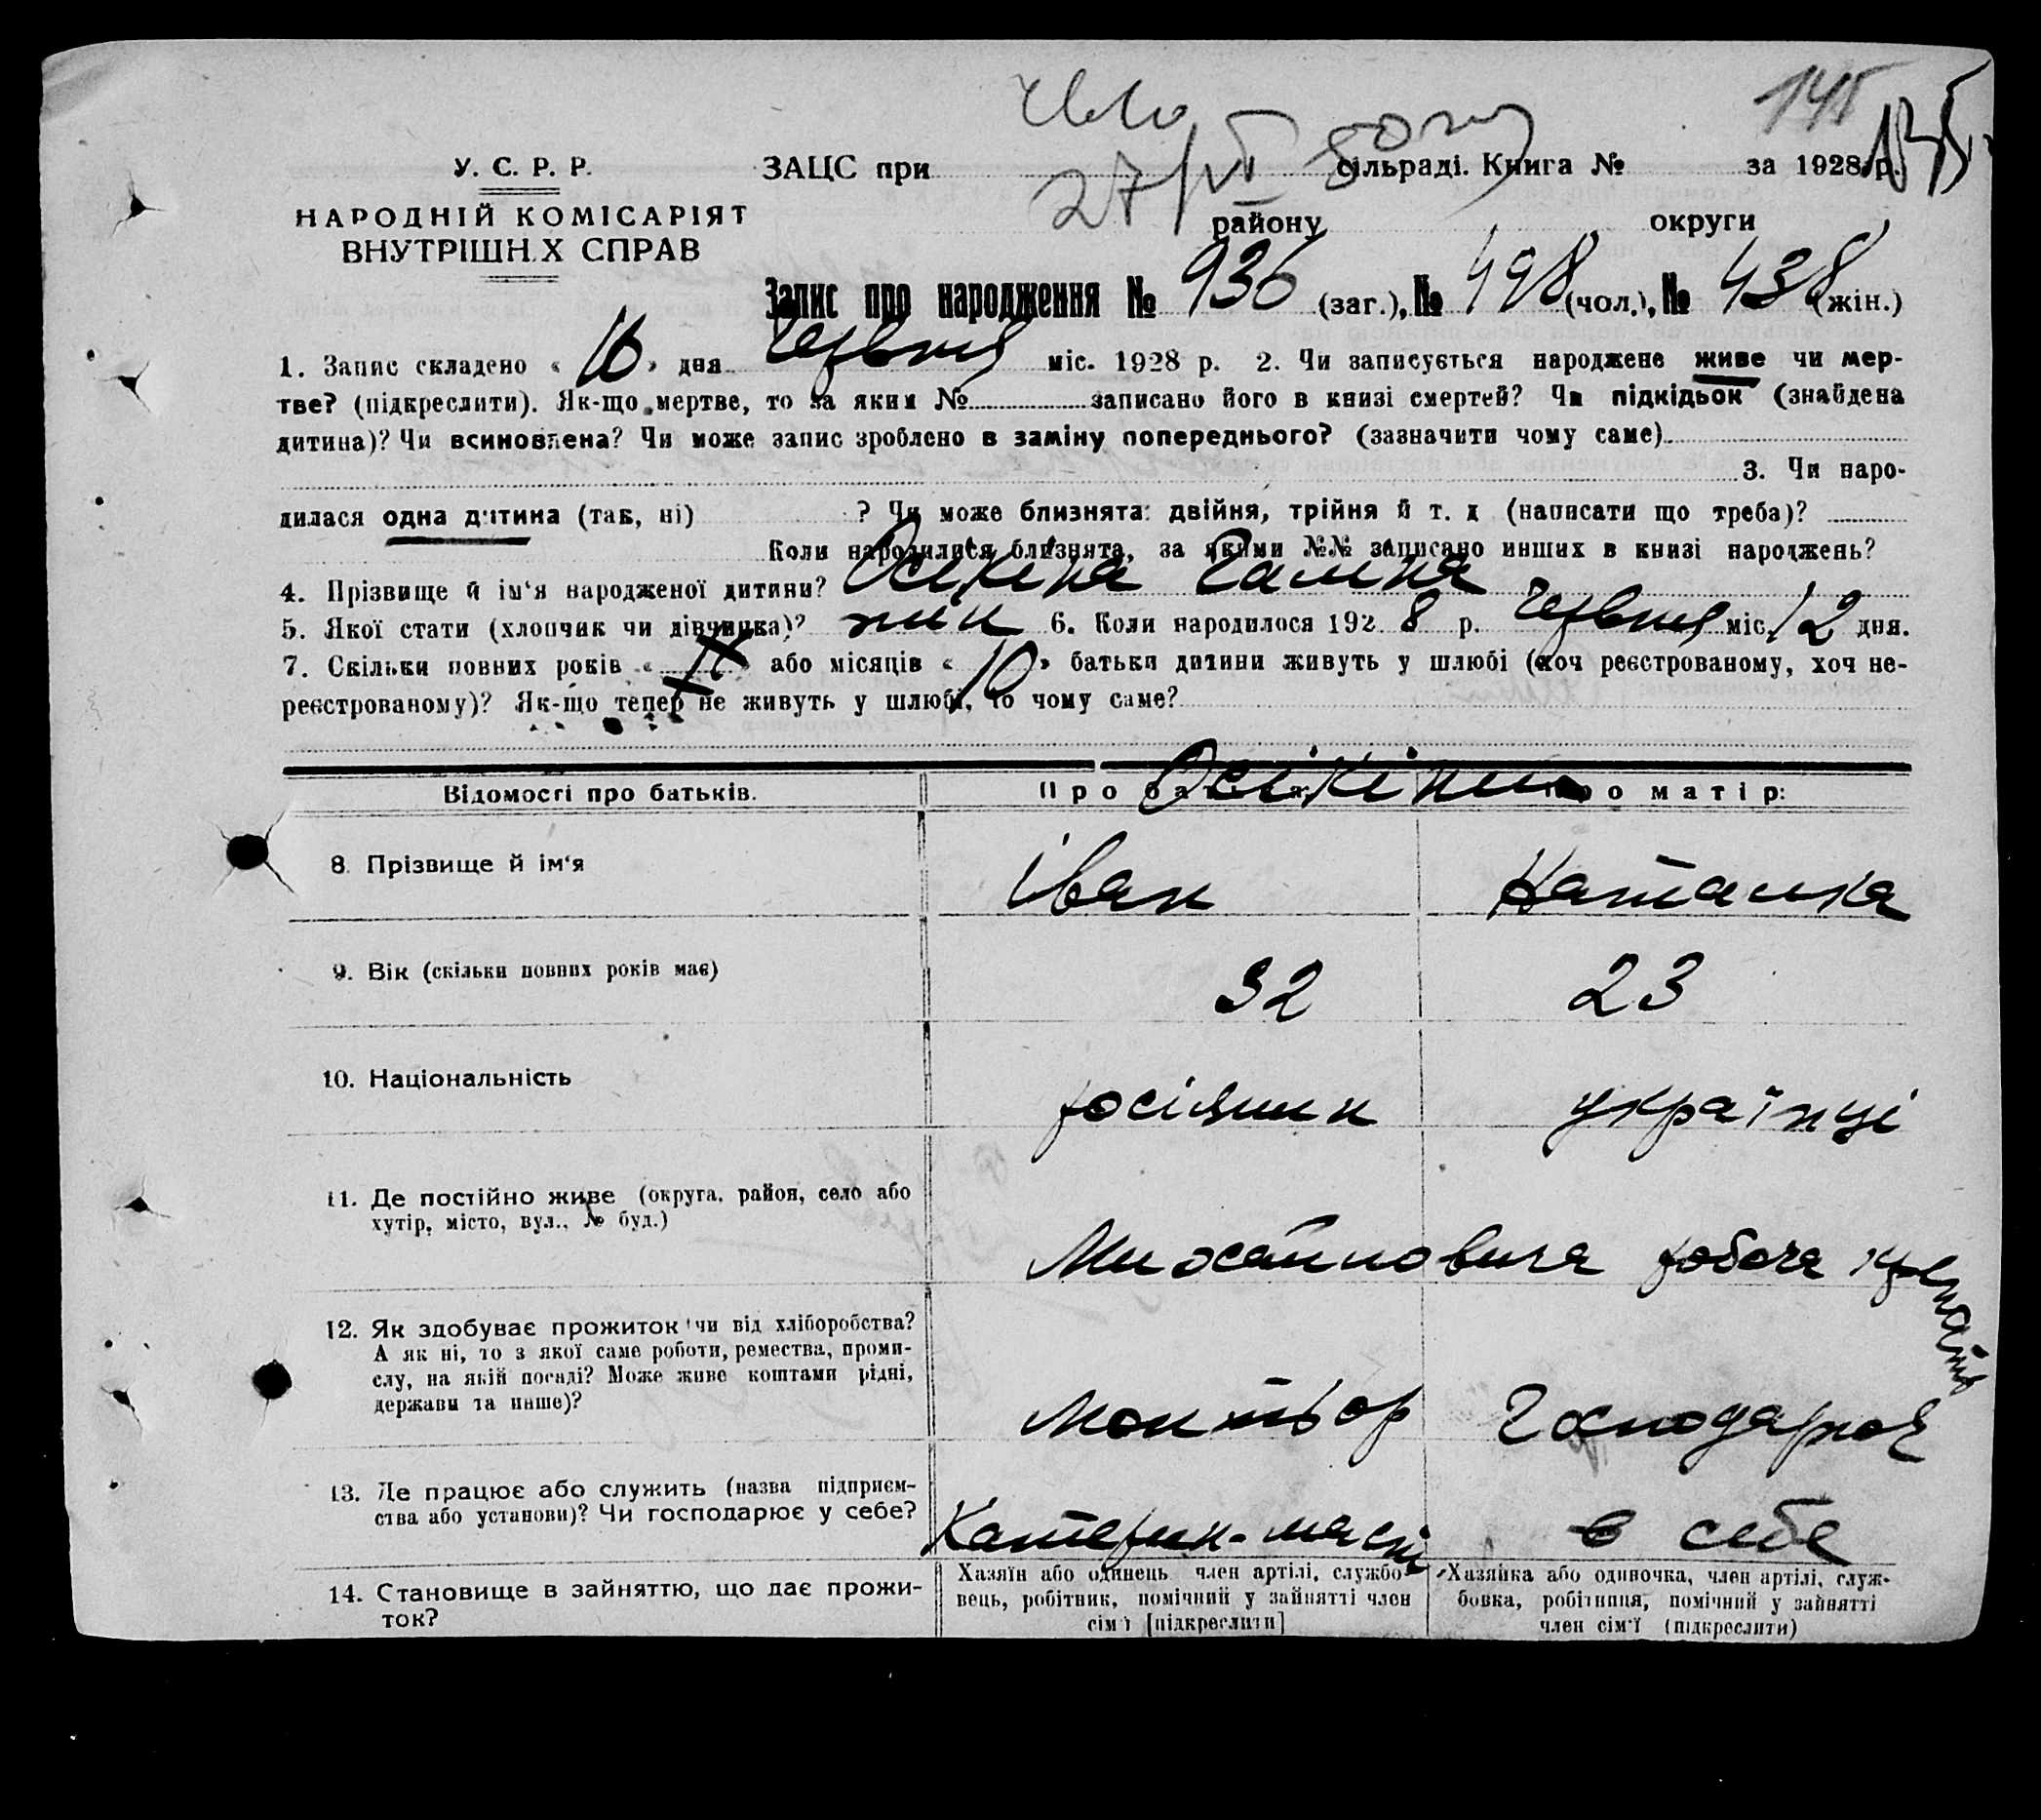 145
135
27/VI 8
У. С. Р. Р.
ЗАЦС при сільраді. Книга № за 1928 р.
НАРОДНІЙ КОМІСАРІЯТ
ВНУТРІШН.Х СПРАВ
району округи
Запис про народження № 936 (заг.), № 498 (чол.), № 438 (жін.)
1. Запис складено « 16 » дня червня міс. 1928 р. 2. Чи записується народжене живе чи мер-
тве? (підкреслити). Як-що мертве, то за яким № записано його в книзі смертей? Чи підкідьок (знайдена
дитина)? Чи всиновлена? Чи може запис зроблено в заміну попереднього? (зазначити чому саме)
3. Чи наро-
дилася одна дитина (так, ні) ? Чи може близнята: двійня, трійня й т. д (написати що треба)?
Коли народилися близнята, за якими №№ записано инших в книзі народжень?
4. Прізвище й ім‘я народженої дитини? Осікіна Галина
5. Якої стати (хлопчик чи дівчинка)? жін 6. Коли народилося 1928 р. червня міс. 12 дня.
7. Скільки повних років « » або місяців « 10 » батьки дитини живуть у шлюбі (хоч реєстрованому, хоч не-
реєстрованому)? Як-що тепер не живуть у шлюбі, то чому саме?
Осікіни
Відомості про батьків. Про батька: Про матір:
8. Прізвище й ім‘я Іван Наталка
9. Вік (скільки повних років має) 32 23
10. Національність росіянин українці
11. Де постійно живе (округа, район, село або
хутір, місто, вул., № буд.)
Михайловича робоча
12. Як здобуває прожиток чи від хліборобства?
А як ні, то з якої саме роботи, ремества, проми-
слу, на якій посаді? Може живе коштами рідні,
держави та инше)?
монтьор Господарює
13. Де працює або служить (назва підприєм-
ства або установи)? Чи господарює у себе?
Катерин-майст в себе
14. Становище в зайняттю, що дає прожи-
ток?
Хазяїн або одинець член артілі, службо-
вець, робітник, помічний у зайнятті член
сім‘ї [підкреслити]
Хазяйка або одиночка, член артілі, служ-
бовка, робітниця, помічний у зайнятті
член сім‘ї (підкреслити)